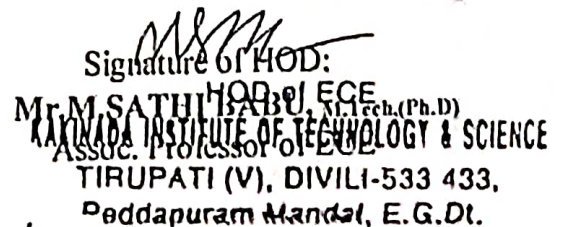 Signature of HOD:
HOD of ECE
Mr.M.SATHI BABU, M.Tech.(Ph.D)
KAKINADA INSTITUTE OF TECHNOLOGY & SCIENCE
Assoc. Professor of ECE
TIRUPATI (V), DIVILI-533 433,
Peddapuram Mandal, E.G.Dt.